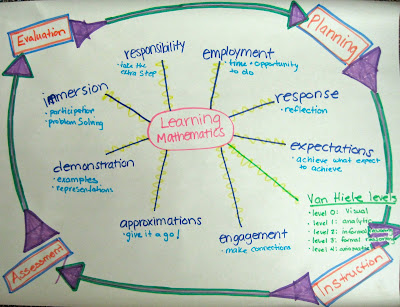 Evaluation
Planning
responsibility
• take the
extra step
employment
• time + opportunity
to do
immersion
• participation
• problem solving
response
• reflection
Learning
Mathematics
expectations
• achieve what expect
to achieve
demonstration
• examples
• representations
Van Hiele levels
• level 0: Visual
• level 1: analytic
• level 2: informal
• level 3: formal reasoning
• level 4:
approximations
• give it a go!
engagement
• make connections
Assessment
Instruction